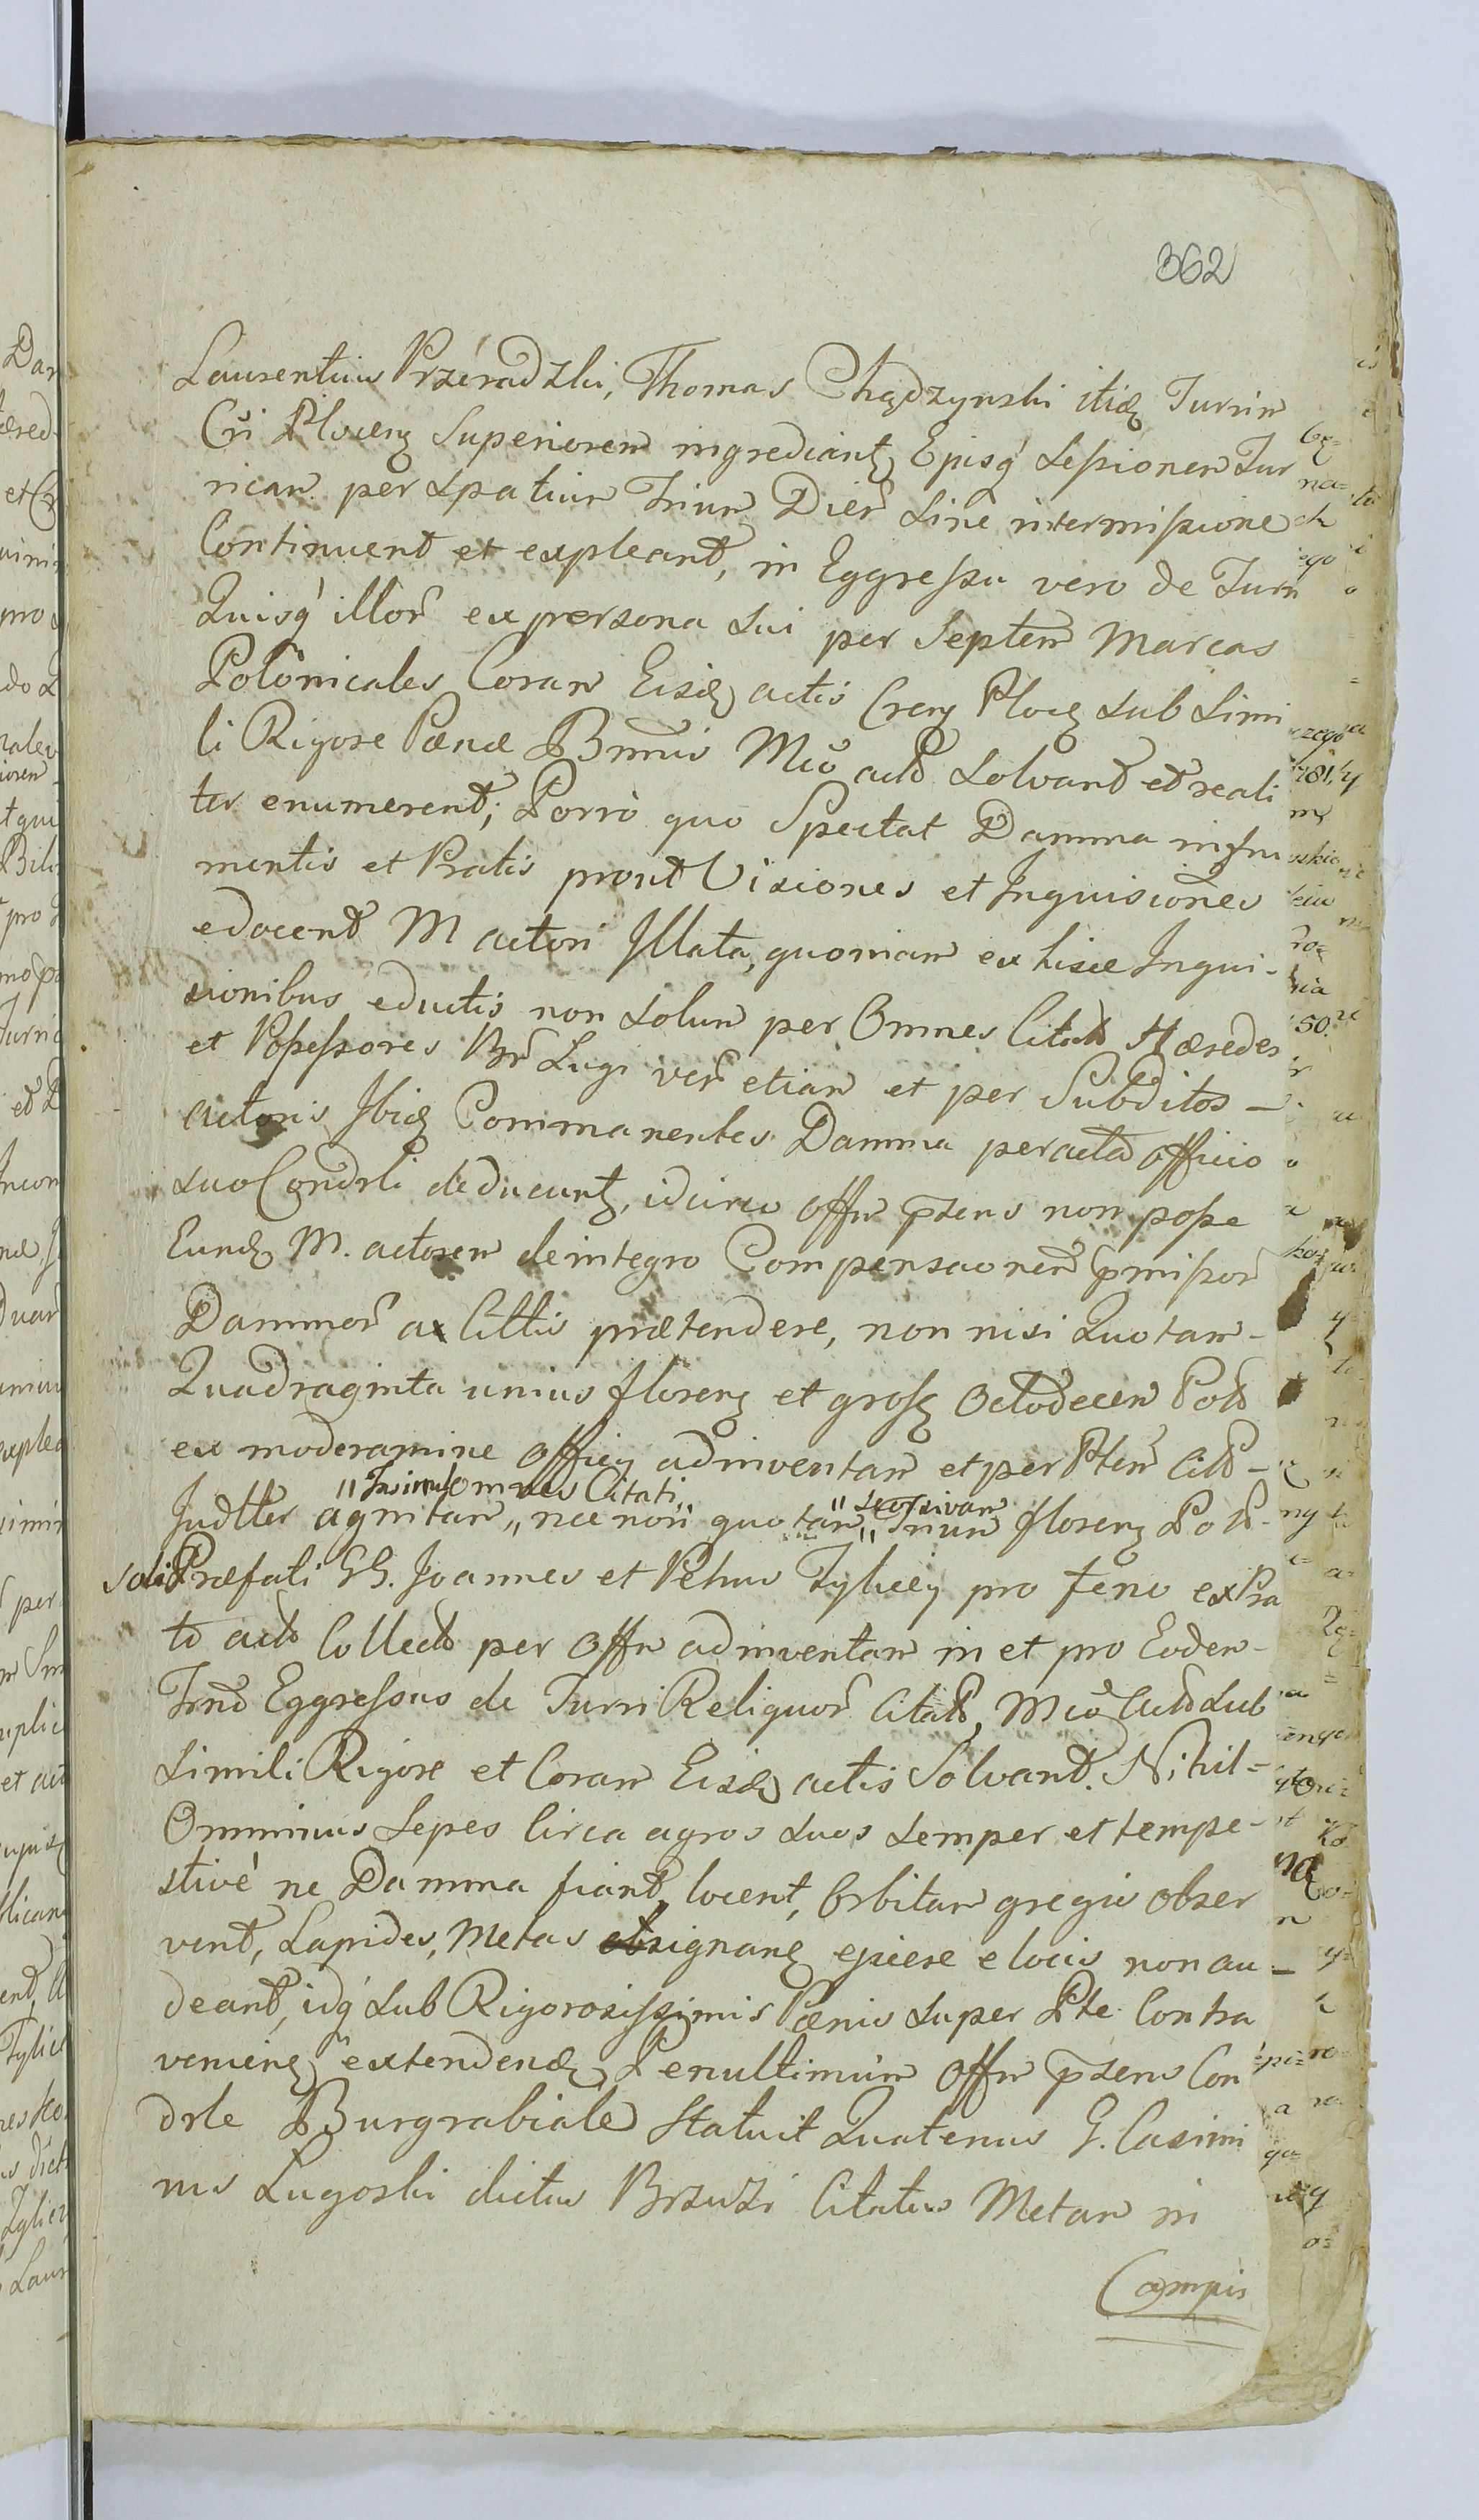 362
Laurentius Przéradzki, Thomas Chądzynski itid Turrim
Cri Plocen Superiorem ingrediant Ejusq Sessionem Tur
ricam per Spatium Trium Dier Sine intermissione
Continuent et expleant, in Eggressu vero de Turri
Quisq illor ex persona Sui per Septem Marcas
Polonicales Coram Eisd actis Cren Ploc Sub Simi
li Rigore Pænæ Bannis Mco acto Solvant et reali
ter enumerent; Porrò quo Spectat Damna in fru
mentis et Pratis prout Visiones et Inquisiones
edocent M actori Illata, quoniam ex hisce Inqui-
sionibus eductis non Solum per Omnes Citato Hæredes
et Possessores Br Lugi ver etiam et per Subditos -
actoris Ibid Commanentes Damna peracta officio
Suo Condrli deducunt, idcirco Offm psens non posse
Eund M. actorem de integro Compensaonem pmissor
Damnor a Cittis prætendere, non nisi Quotam -
Quadraginta unius floren et gross Octodecem Polo
ex moderamine Officy adinventam et per Ptem Cito -
"Insimul Omnes Citati" "Seorsivam
Judtter agnitam, nec non quotam, Trium floren Polo -
Soli Præfati GG. Joannes et Petrus Tyliccy pro feno ex Pra
to acto Collecto per Offm adinventam in et pro Eodem -
Trno Eggressus de Turri Reliquor Citato, Mco Acto Sub
Simili Rigore et Coram Eisd actis Solvant. Nihil =
Omminus Sepes Circa agros Suos Semper et tempe-
stivè ne Damna fiant, locent, Orbitam gregis obser
vent, Lapides, Metas signan ejicere e locis non au -
deant, idq Sub Rigorosissimis Pænis Super Pte Contra
venien extendend, Penultimùm Offm psens Con
drle Burgrabiale Statuit Quatenus G. Casimi
rus Lugoski dictus Brzuzi Citatus Metam in
Campis